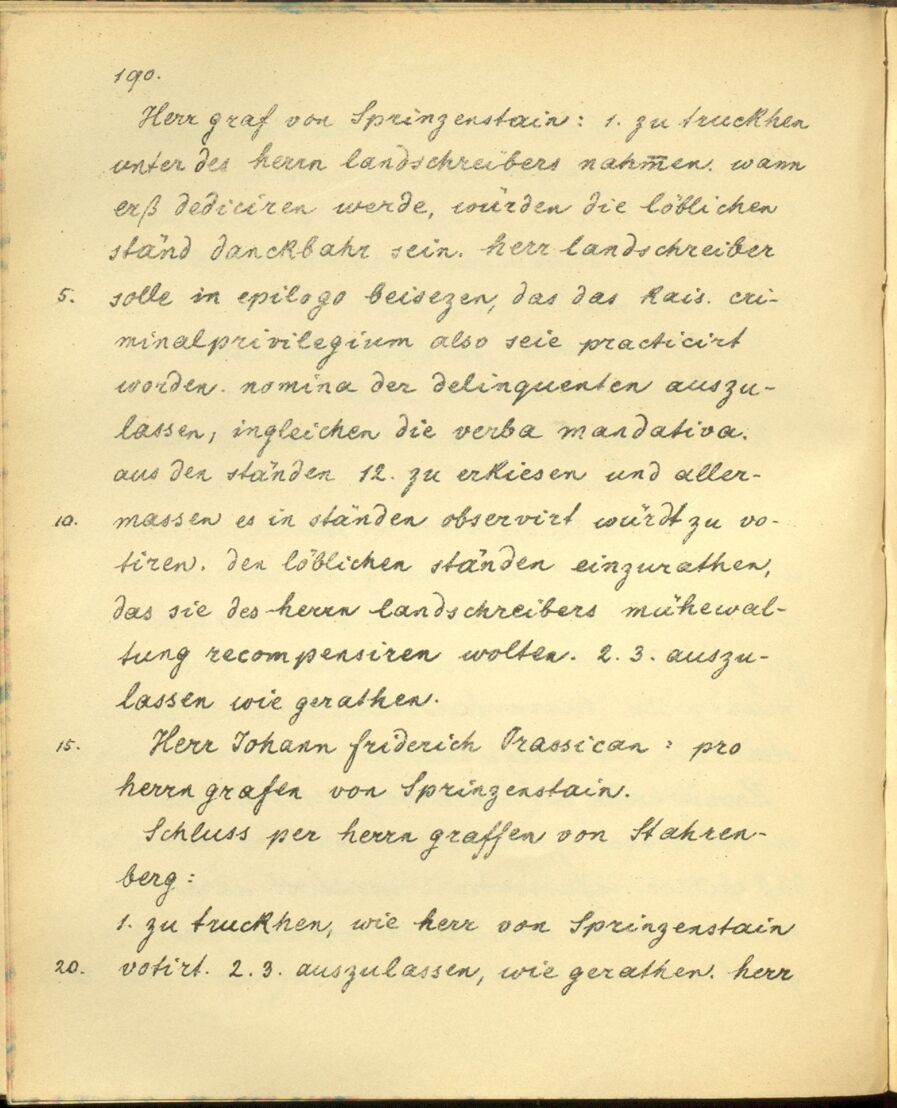 190.
Herr graf von Sprinzenstain: 1. zu truckhen
unter des herrn landschreibers nahm̅en. wann
erß dediciren werde, würden die löblichen
ständ danckbahr sein. herr landschreiber
5. solle in epilogo beisezen, das das kais. cri-
minalprivilegium also seie practicirt
worden. nomina der delinquenten auszu-
lassen, ingleichen die verba mandativa.
aus den ständen 12. zu erkiesen und aller-
10. massen es in ständen observirt würdt zu vo-
tiren. den löblichen ständen einzurathen,
das sie des herrn landschreibers mühewal-
tung recompensiren wolten. 2. 3. auszu-
lassen wie gerathen.
15. Herr Johann friderich Prassican: pro
herrn grafen von Sprinzenstain.
Schluss per herrn graffen von Stahren-
berg:
1. zu truckhen, wie herr von Sprinzenstain
20. votirt. 2. 3. auszulassen, wie gerathen. herr